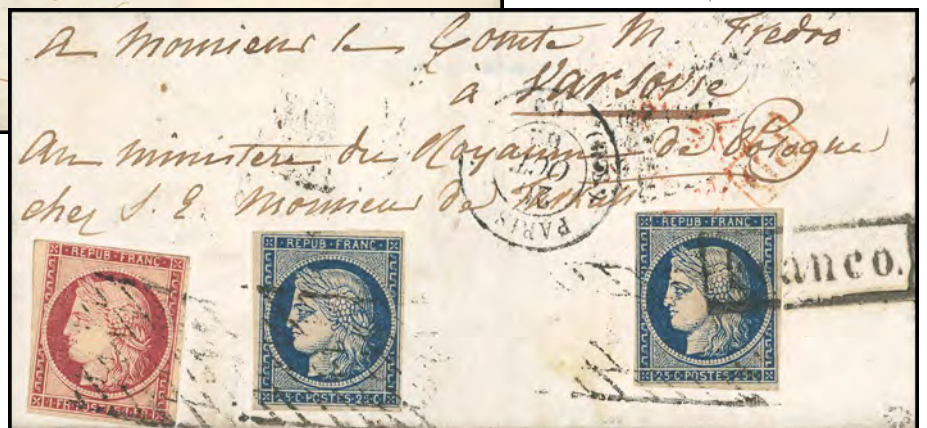 A Monsieur le Comte M. Fredro
à Varsovie
Au ministere du Royaume de Pologne
chez S. E. Monsieur de
PARIS
2
OCT
REPUB · FRANC
1 · FR · POSTES · 1 · FR
REPUB · FRANC
25 · C · POSTES · 25 · C
REPUB · FRANC
25 · C · POSTES · 25 · C
Franco.